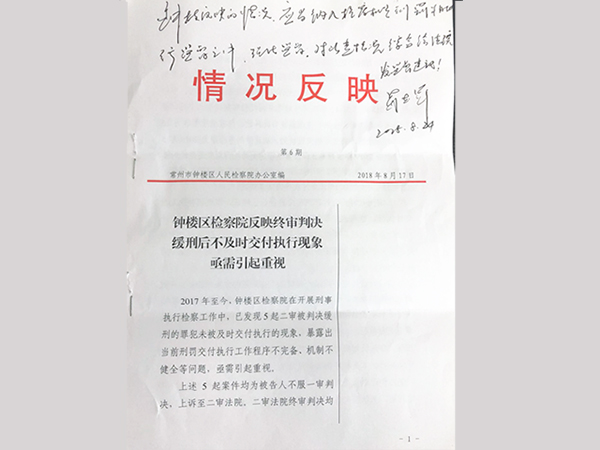 情况反映
第6期
常州市钟楼区人民检察院办公室编 2018年8月17日
钟楼区检察院反映终审判决
缓刑后不及时交付执行现象
亟需引起重视
2017年至今，钟楼区检察院在开展刑事
执行检察工作中，已发现5起二审被判决缓
刑的罪犯未被及时交付执行的现象，暴露出
当前刑罚交付执行工作程序不完备，机制不
健全等问题，亟需引起重视。
上述5起案件均为被告人不服一审判
决，上诉至二审法院，二审法院终审判决均
- 1 -